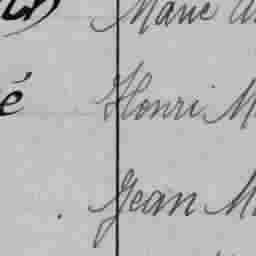 Marie
é Henri M
Jean M